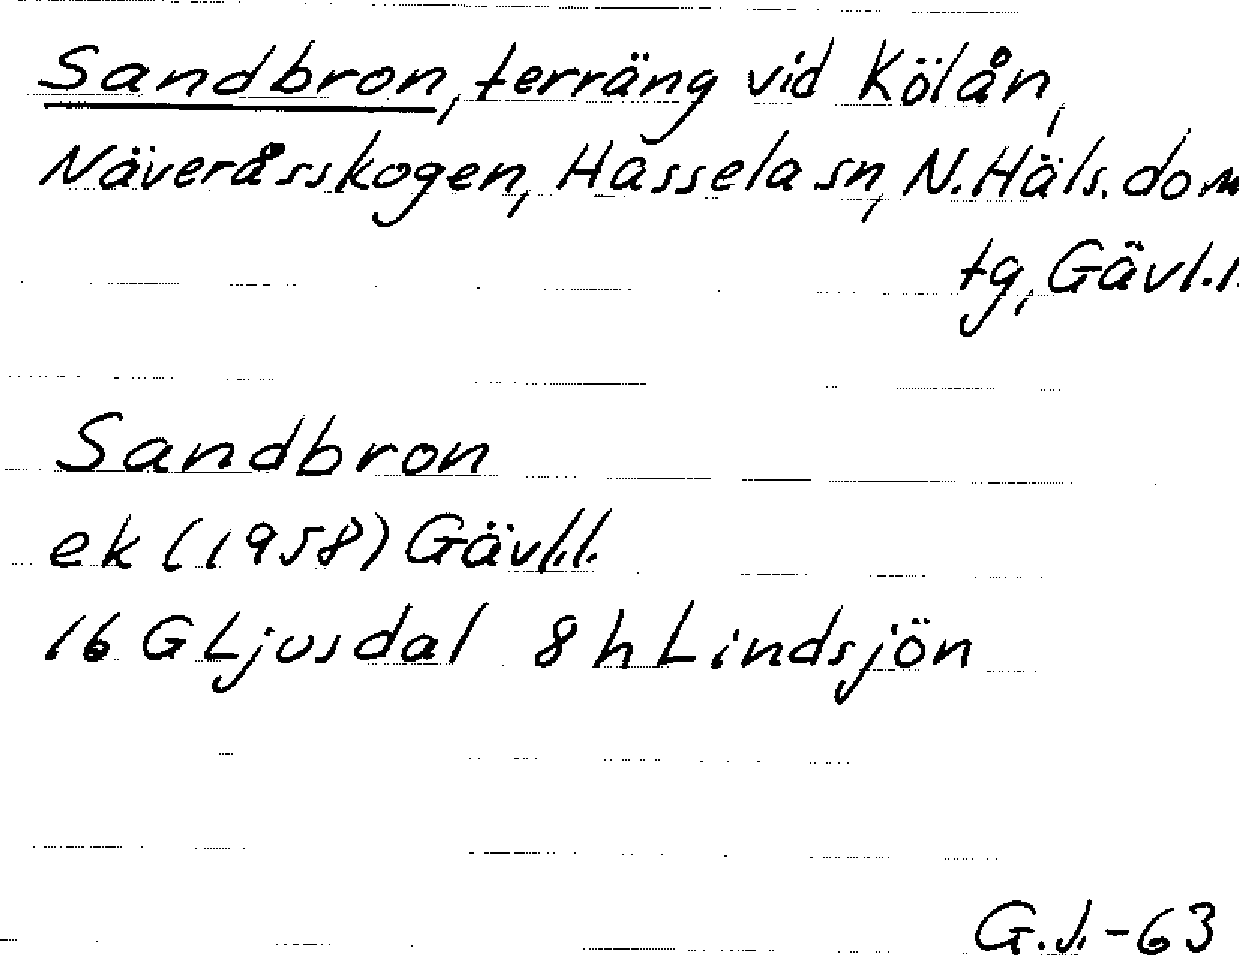 Sandbron, terräng vid Kölån,
Näveråsskogen, Hassela sn, N. Häls. dom
tg, Gävl.l.
Sandbron
ek (1958) Gävl.l.
16 G Ljusdal 8 h Lindsjön
G.J.-63